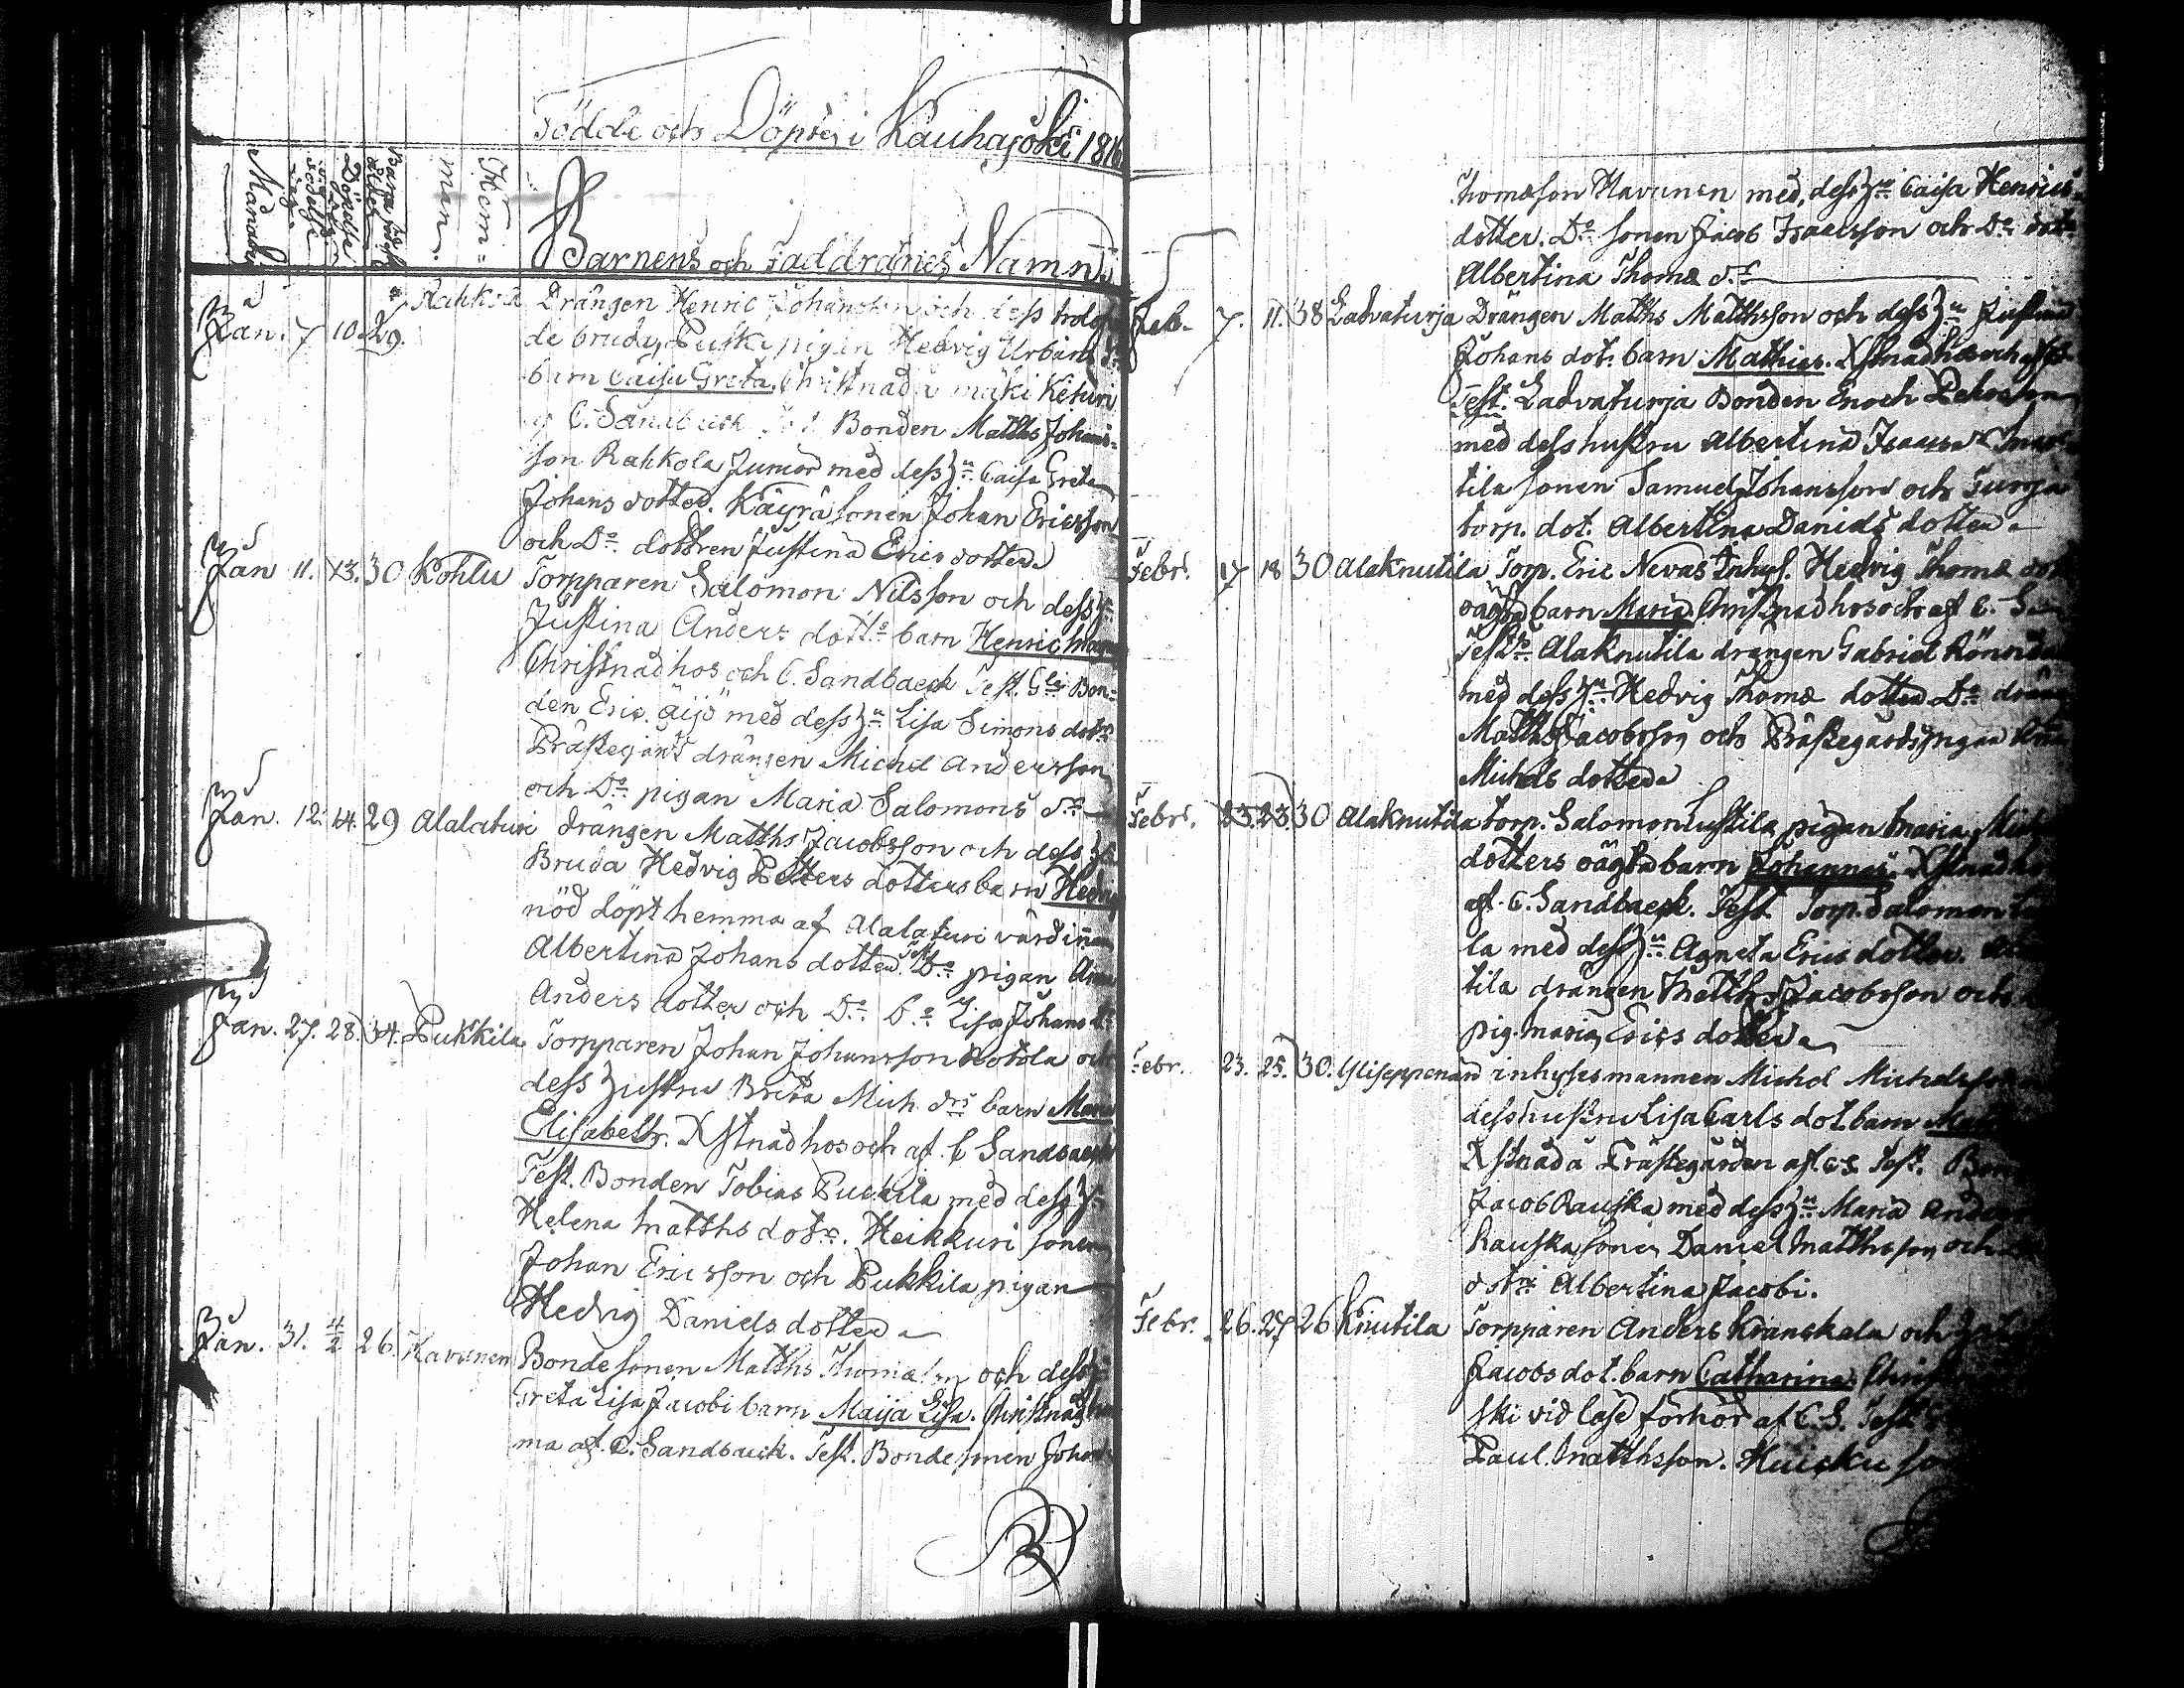 Födde och Döpte i Kauhajoki 181
Månader
Födelse dag
Döpelse dag
Hem-
man.
Barnens och Faddrarnes Namn.
Jan. 7 10. 29. Rahkola Drängen Henric Johansson och dess trolofva
de brud, pigan Hedvig Urbans
barn Caisa Greta. Christnad i mäki Keturi
C. Sandback Bonden Matths Johans-
son Rahkola Junior med dess Hu. Caisa Greta
Johans dotter. Käyrä sonen Johan Ericsson
och Do. dottren Justina Erics dotter
Jan 11. 13. 30 Kohlu Torpparen Salomon Nilsson och dess H.
Justina Anders dotts barn Henric
Christnad hos och C. Sandbaeck Test. Bon-
den Eric Äijö med dess Hu. Lisa Simons dotr
Prästegårds drängen Michel Andersson
och Do. pigan Maria Salomons dr.
Jan. 12. 14. 29 Alalaturi drängen Matths Jacobsson och dess
Bruda Hedvig Petters dotters barn Hedvig
nöd döpt hemma af Alalaturi värdinnan
Albertina Johans dotter. Test. Do. pigan Anna
Anders dotter och Do. Do. Lisa Johans dr
Jan. 27. 28. 34. Pukkila Torpparen Johan Johansson och
dess Hustru Brita Mich. drs barn Maria
Elisabeth. Xstnad hos och af C Sandbaeck
Test. Bonden Tobias Puckila med dess H.
Helena Matths dotr. Heikkuri sonen
Johan Ericsson och Pukkila pigan
Hedvig Daniels dotter
Jan. 31. 4/2 26. Havunen Bonde sonen Matths Thomasson och dess H.
Greta Lisa Jacobi barn Maija Lisa. Christnad hem
ma af C. Sandback. Test. Bonde sonen Johan
Thomasson Havunen med dess Hu Caisa Henrics
dotter. Do. sonen Jacob Isaacsson och Do. dotr
Albertina Thomæ dr.
Feb. 7. 11. 38 Ladvaturja Drängen Matths Matthsson och dess Hu Justina
Johans dot. barn Mathias. Xstnad hos och af
Test. Ladvaturja Bonden Enoch
med dess hustru Albertina Isaacs dr.
tila sonen Samuel Johansson och Turja
torp. dot. Albertina Daniels dotter
Febr. 17 18 30 Alaknutila Torp. Eric Nevas Inhys. Hedvig Thomæ dot
oägta barn Maria Christnad hos och af C. San
Test. Alaknutila drängen Gabriel
med dess Hu. Hedvig Thomæ dotter Do. dräng
Matths Jacobsson och Prästegårds pigan
Michels dotter
Febr. 23. 23. 30 Alaknutila torp. Salomon Lustila pigan Maria Mich
dotters oägta barn Johannes. Xstnad hos
af C. Sandbaeck. Test. Torp. Salomon
la med dess Hu. Agneta Erics dotter.
tila drängen Matths Jacobsson och
pig. Maria Erics dotter
Febr. 23. 25. 30. Yliseppänen inhysesmannen Michel Michelsson
dess hustru Lisa Carls dot. barn
Xstnad å Prästegården af C.S. Test. Bon
Jacob Rauska med dess Hu. Maria Anders
Rauska sonen Daniel Matthsson och
dotr. Albertina Jacobi.
Febr. 26. 27 26 Knutila Torpparen Anders Kranskala och
Jacobs dot. barn Catharina Christ
ski vid läse förhör af C.S. Test.
Paul Matthsson. so